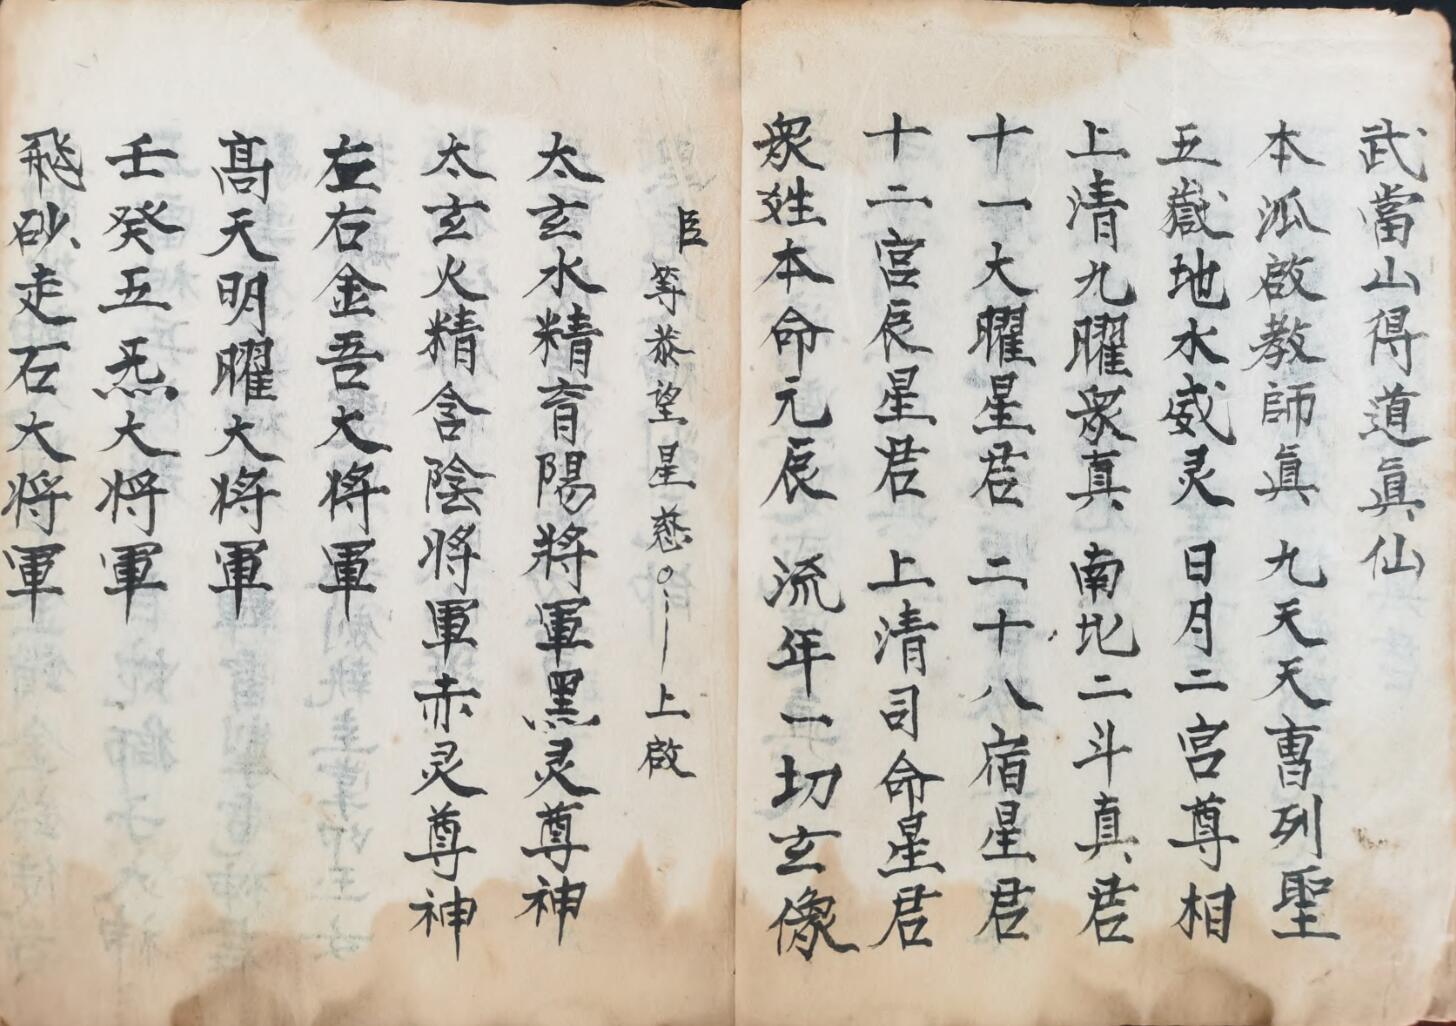 武當山得道眞仙
本派啟教師眞　九天天曹列聖
五嶽地水威灵　日月二宮尊相
上清九曜衆真　南北二斗真君
十一大曜星君　二十八宿星君
十二宮辰星君　上清司命星君
衆姓本命元辰　流年一切玄像
臣等恭望星慈○上啟
太玄水精育陽將軍黑灵尊神
太玄火精含陰將軍赤灵尊神
左右金吾大將軍
髙天明曜大將軍
壬癸五炁大將軍
飛砂走石大將軍